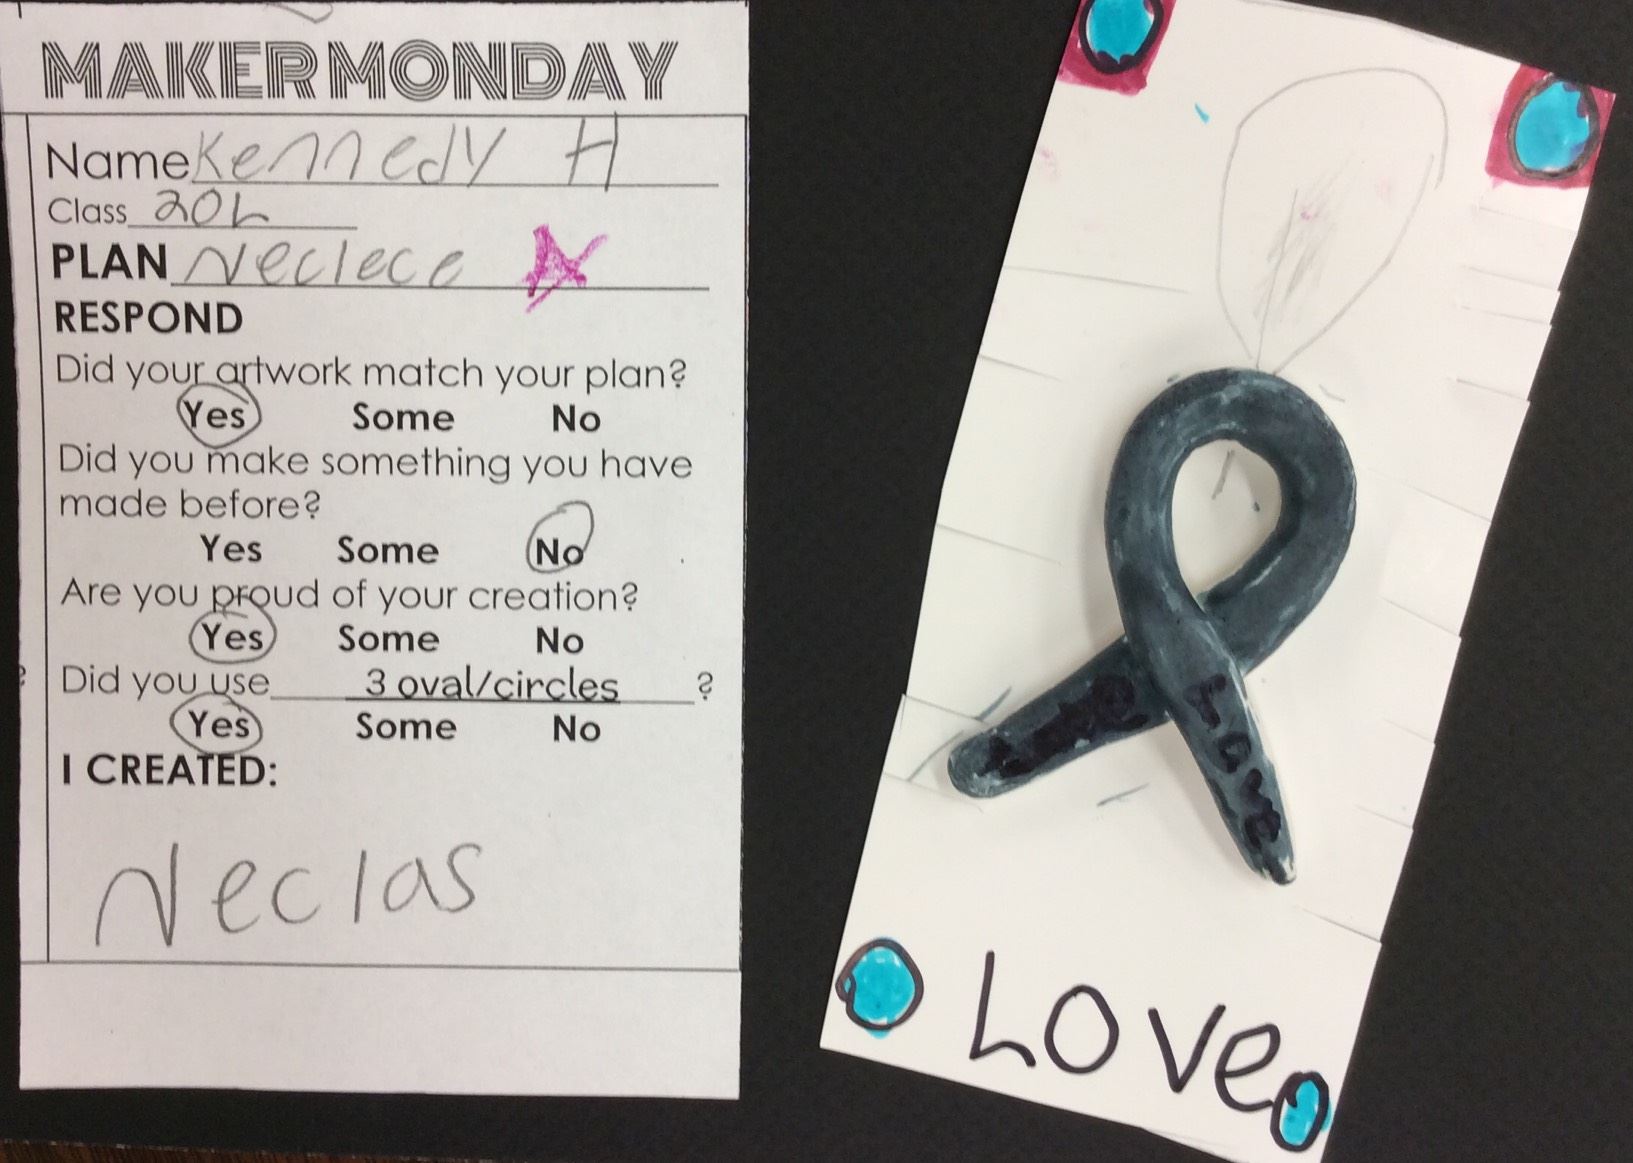 MAKER MONDAY
Name Kennedy H
Class 20L
PLAN Neclece
RESPOND
Did your artwork match your plan?
Yes Some No
Did you make something you have
made before?
Yes Some No
Are you proud of your creation?
Yes Some No
Did you use 3 oval/circles ?
Yes Some No
I CREATED:
Neclas
Love
Love